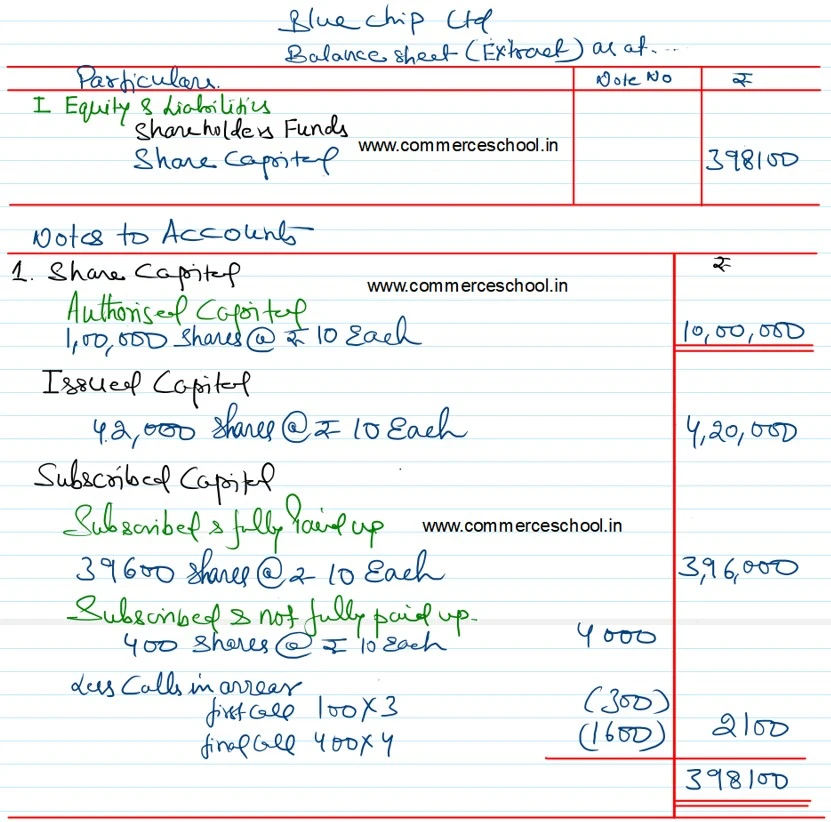 Blue chip Ltd
Balance sheet (Extract) as at....
Particulars. Note No ₹
I Equity & Liabilities
Shareholders Funds
www.commerceschool.in
Share Capital 398100
Notes to Accounts
1. Share Capital ₹
www.commerceschool.in
Authorised Capital
1,00,000 Shares @ ₹ 10 Each 10,00,000
Issued Capital
42,000 Shares @ ₹ 10 Each 4,20,000
Subscribed Capital
Subscribed & fully Paid up www.commerceschool.in
39600 Shares @ ₹ 10 Each 3,96,000
Subscribed & not fully paid up.
400 Shares @ ₹ 10 Each 4000
Less Calls in arrear
first Call 100 X 3 (300)
final Call 400 X 4 (1600) 2100
398100